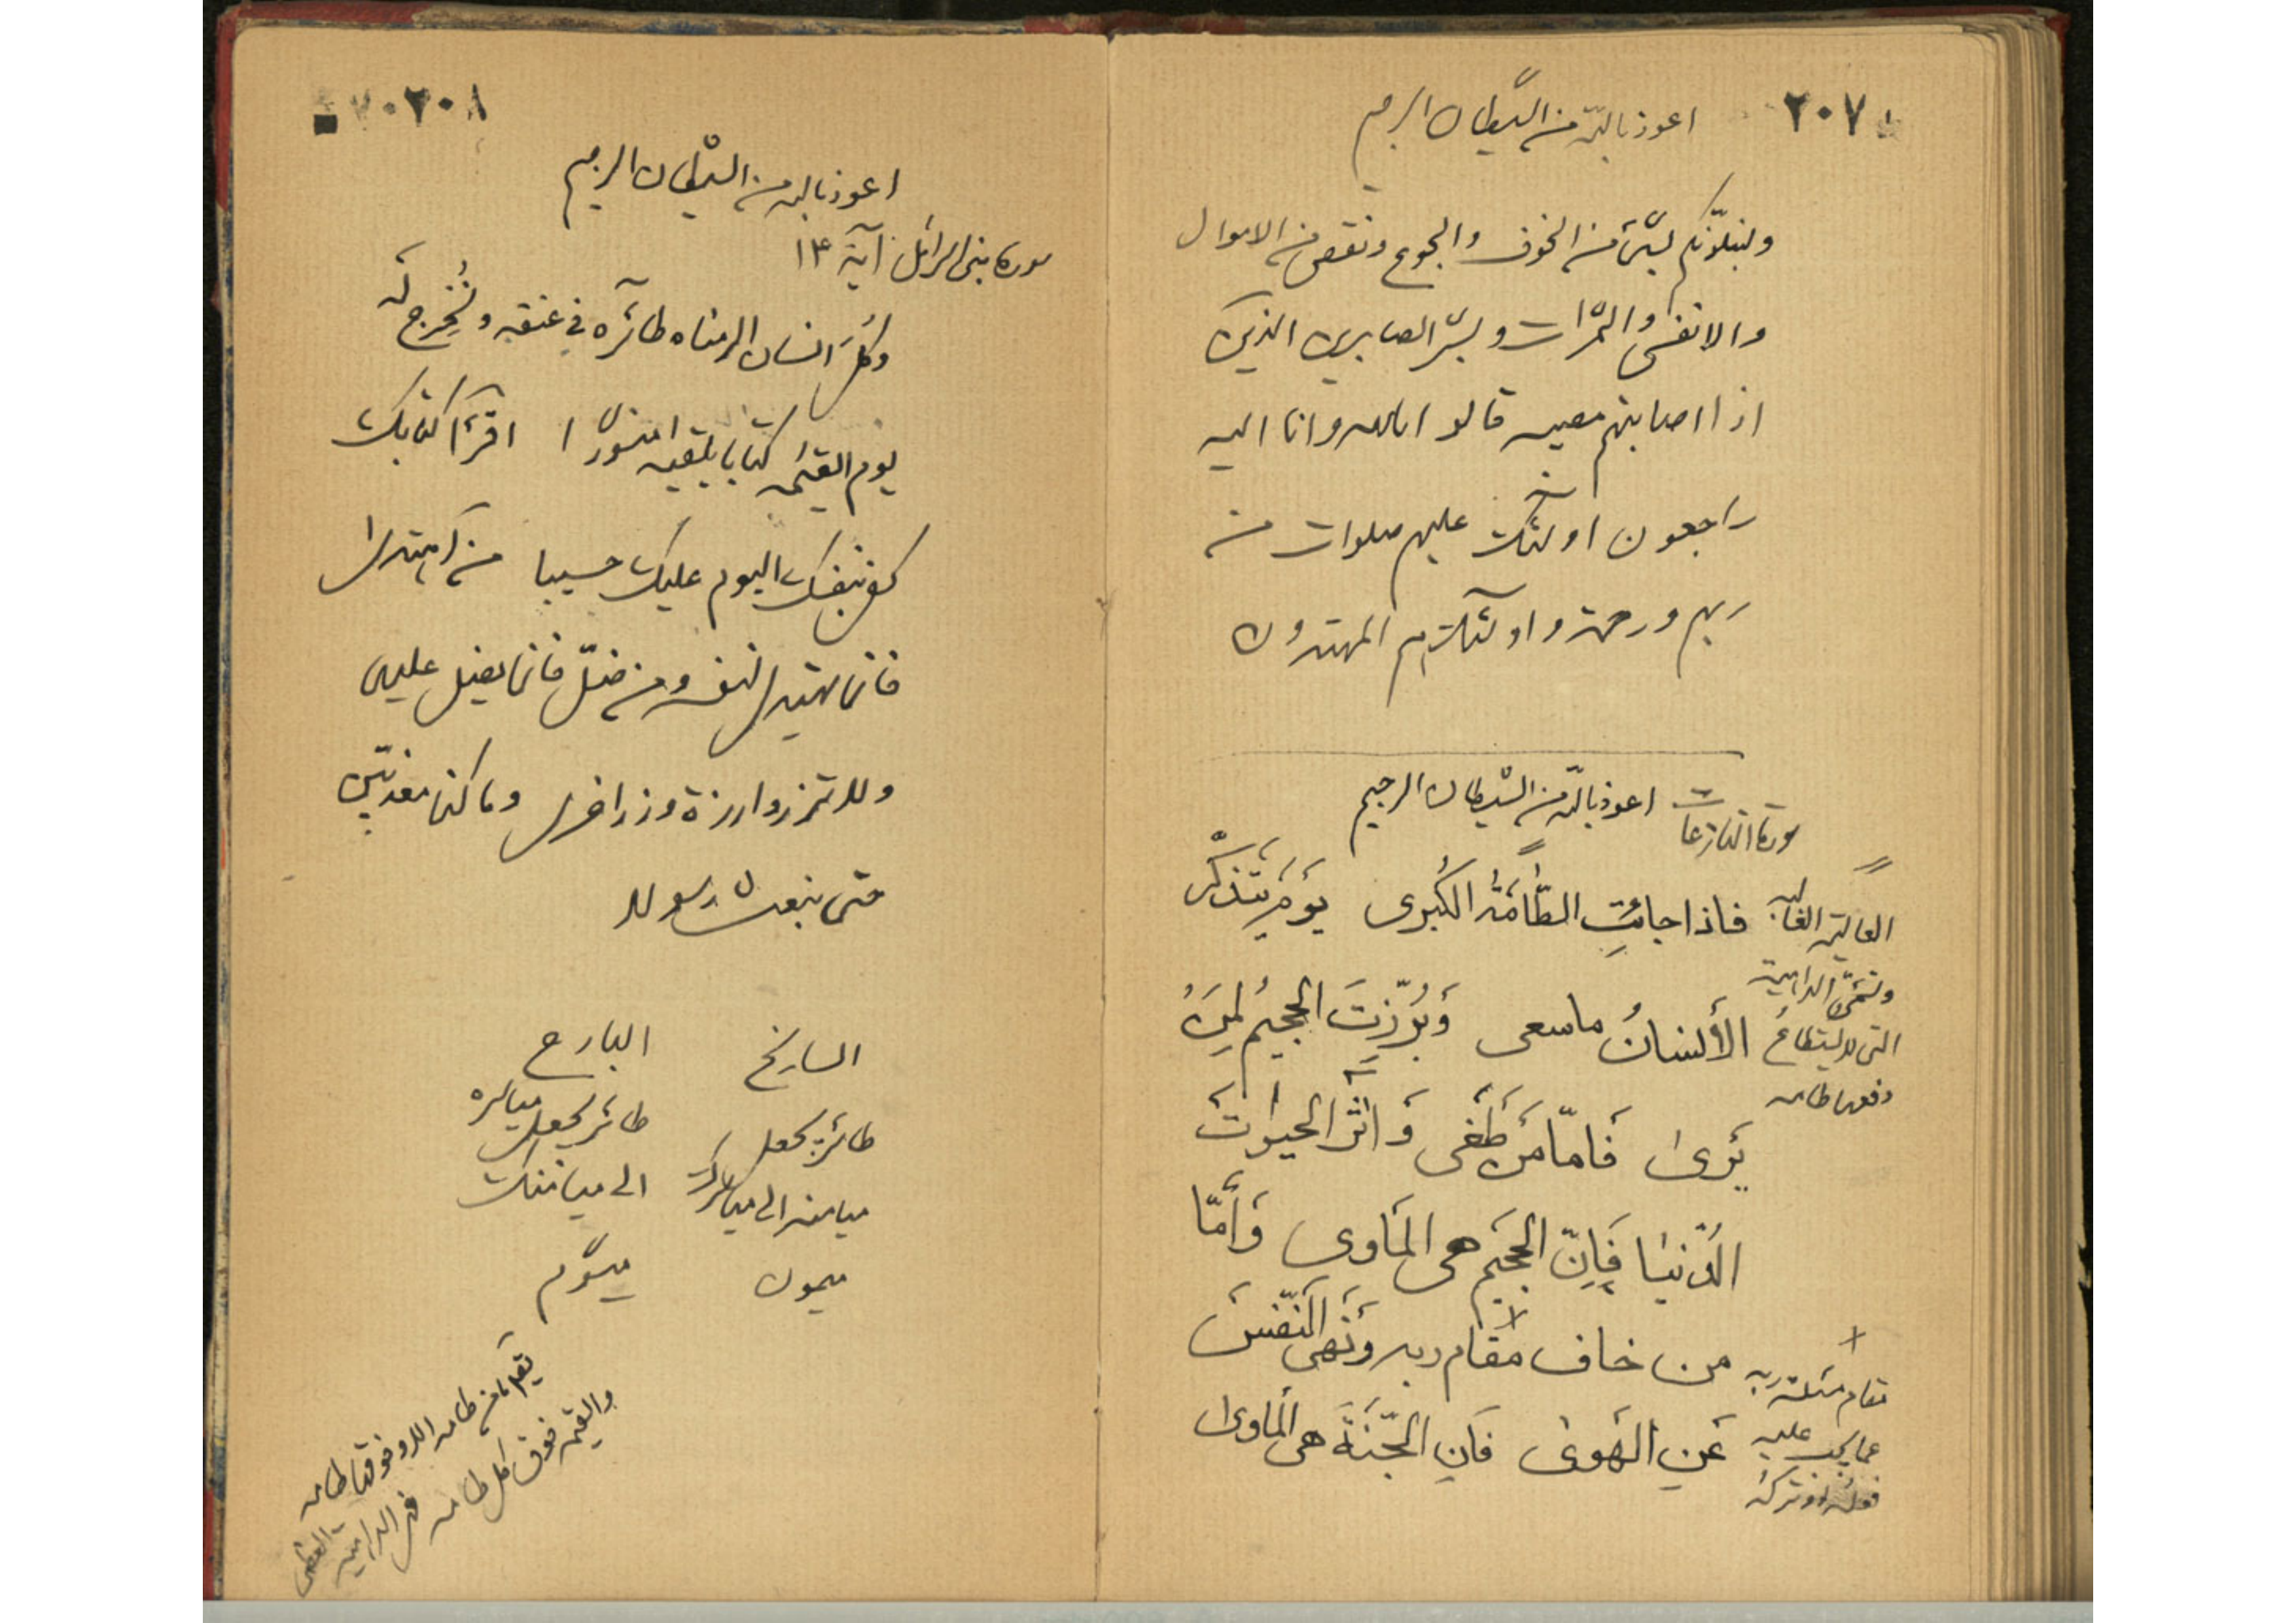 ٢٠٧
اعوذ بالله من الشّيطان الرجيم
ولنبلونّكم بشئ من الخوف والجوع ونقص من الاموال
والانفس والثمرات وبشّر الصابرين الذين
اذا اصابتهم مصيبه قالوا انا لله وانا اليه
راجعون اولئك عليهم صلوات من
ربهم ورحمة واولئك هم المهتدون
سورة النازعات اعوذ بالله من الشيطان الرجيم
فاذا جائتِ الطّامَّةُ الكُبرى يَومَ يَتَذكّر
الأنسانُ ماسعى وَبُرّزتَ الجحيمُ لِمَن
يَرىٰ فَامّا مَن طَغى وَ اثَر الحيوٰت
الدُّنيٰا فَاِنّ الجَحيم هى المَاوى وَأمّا
من خاف مَقام ربه ونَهى النّفسَ
عَنِ الهَوىٰ فَانِ الجّنَةَ هى المَاوىٰ
العالية الغالبه
وتسمّى الداهية
التى لا يستطاع
دفعها طامه
مقام مسئلة ربه
عما يجب عليه
فعله او تركه
٢٠٨
اعوذ بالله من الشيطان الرجيم
سورة بنى اسرائيل آية ١٣
وكلّ انسان الزمناه طائره في عنقه ونُخرِج لَه
يوم القيٰمه كتابا يلقيه منشورًا اقرأ كتابك
كفى بنفسك اليوم عليك حسيبا من اهتدى
فانما يهتدى لنفسه ومن ضلّ فانما يضل عليها
ولا تزر وازرة وزر اخرى وما كنا معذبين
حتى نبعث رسولا
السارنح البارح
طائر يجعل طائر يجعل مياسره
ميامنه الى مياسرك الى ميامنك
ميمون ميشوم
يقال ما من طامه الا وفوقها طامه
والقيٰمه فوق كل طامه فهى الداهية العظمى